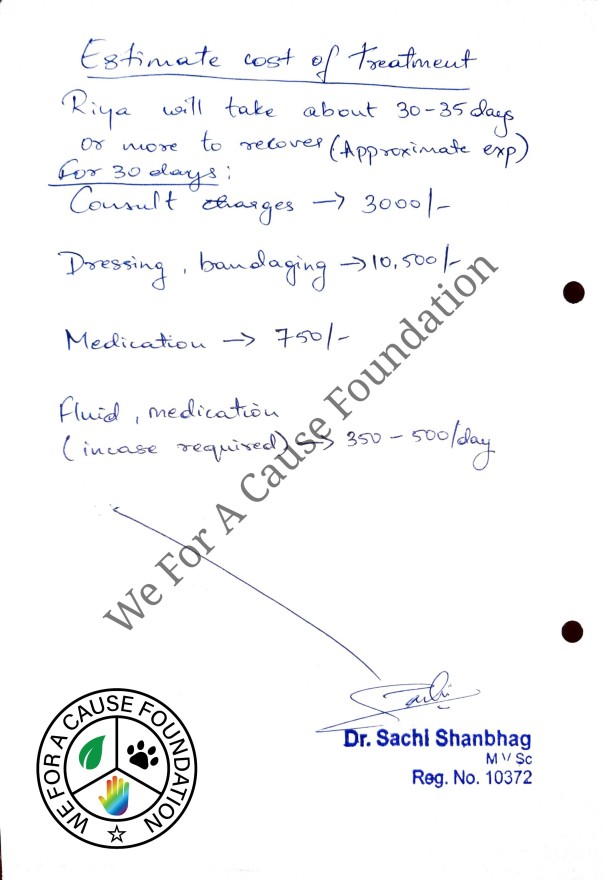 Estimate cost of treatment
Riya will take about 30-35 days
or more to recover (Approximate exp)
For 30 days:
Consult charges → 3000/-
Dressing, bandaging → 10,500/-
Medication → 750/-
Fluid, medication
(incase required) → 350 - 500/day
We For A Cause Foundation
Sachi
Dr. Sachi Shanbhag
M V Sc
Reg. No. 10372
WE FOR A CAUSE FOUNDATION